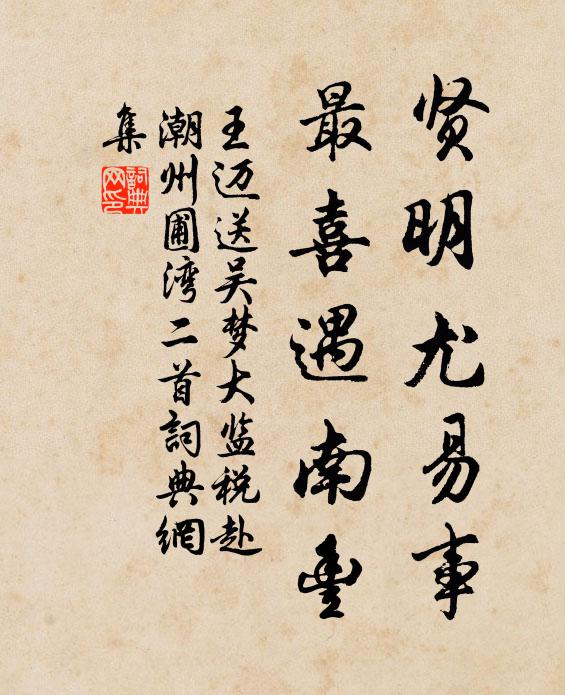 贤明尤易事
最喜遇南豊
王迈送吴梦大监税赴
潮州圃湾二首詞典網
集
詞典
网印